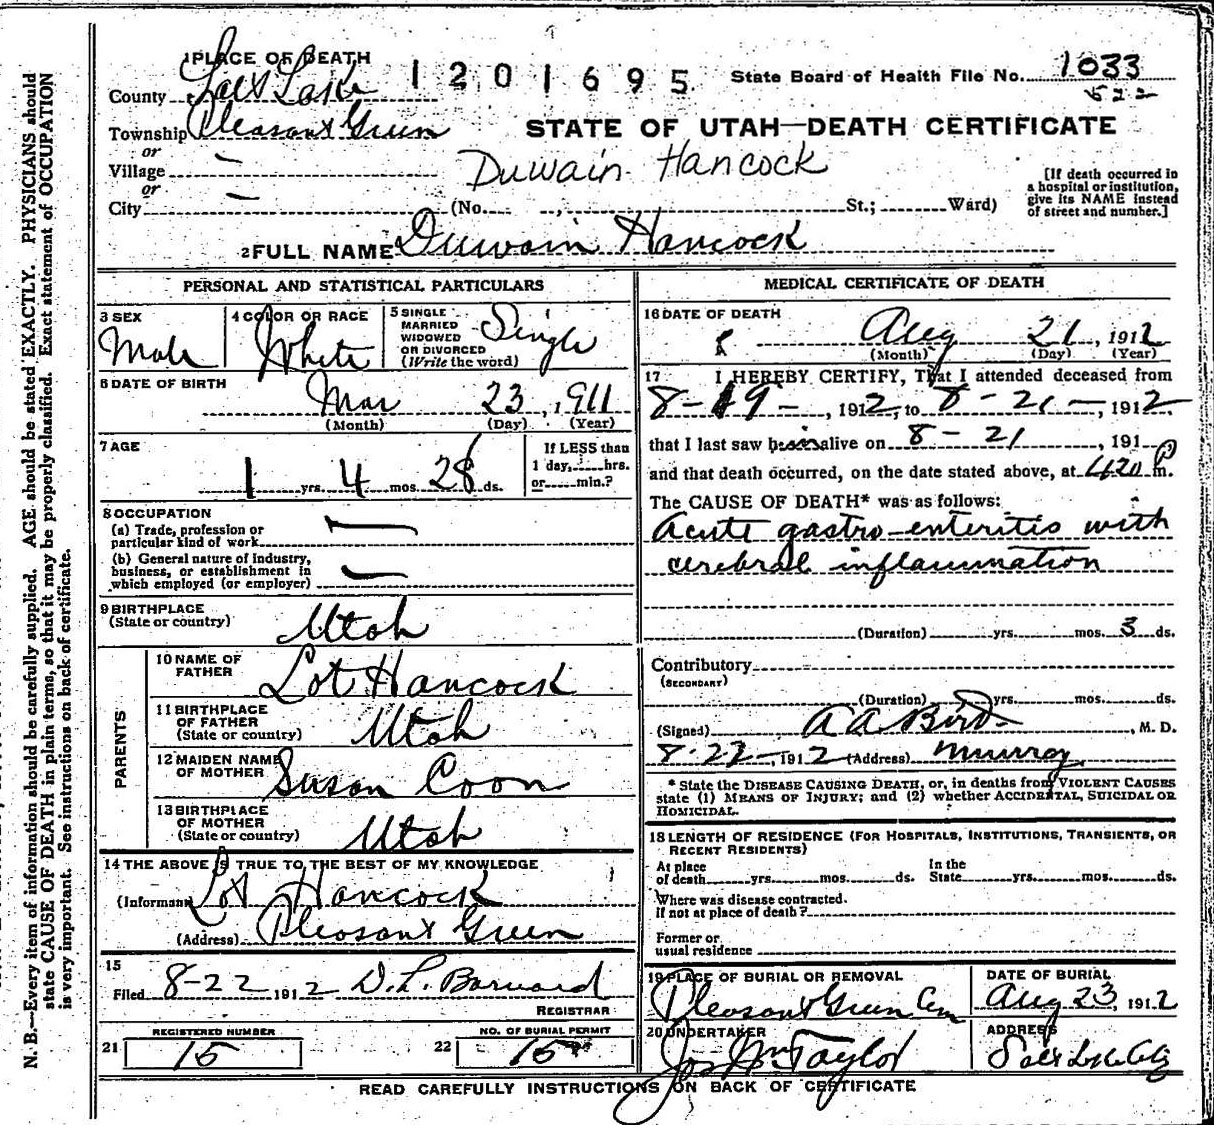 1 PLACE OF DEATH
1201695
State Board of Health File No. 1033
522
County Salt Lake
Township Pleasant Green
STATE OF UTAH—DEATH CERTIFICATE
or
Village —
Duwain Hancock
or
City —
(No. , St.; Ward)
[If death occurred in
a hospital or institution,
give its NAME instead
of street and number.]
2 FULL NAME Duwain Hancock
PERSONAL AND STATISTICAL PARTICULARS
3 SEX
Male
4 COLOR OR RACE
White
5 SINGLE
MARRIED
WIDOWED
OR DIVORCED
(Write the word)
Single
6 DATE OF BIRTH
Mar 23, 1911
(Month) (Day) (Year)
7 AGE
1 yrs. 4 mos. 28 ds.
If LESS than
1 day, hrs.
or min.?
8 OCCUPATION
(a) Trade, profession or
particular kind of work —
(b) General nature of industry,
business, or establishment in
which employed (or employer) —
9 BIRTHPLACE
(State or country)
Utah
PARENTS
10 NAME OF
FATHER
Lot Hancock
11 BIRTHPLACE
OF FATHER
(State or country)
Utah
12 MAIDEN NAME
OF MOTHER
Susan Coon
13 BIRTHPLACE
OF MOTHER
(State or country)
Utah
14 THE ABOVE IS TRUE TO THE BEST OF MY KNOWLEDGE
(Informant Lot Hancock
(Address) Pleasant Green
15
Filed 8-22 1912 D. L. Barnard
REGISTRAR
REGISTERED NUMBER
21 15
NO. OF BURIAL PERMIT
22 15
MEDICAL CERTIFICATE OF DEATH
16 DATE OF DEATH
8 Aug 21, 1912
(Month) (Day) (Year)
17 I HEREBY CERTIFY, That I attended deceased from
8-19-, 1912, to 8-21-, 1912.
that I last saw him alive on 8-21, 191
and that death occurred, on the date stated above, at 420 P m.
The CAUSE OF DEATH* was as follows:
Acute gastro-enteritis with
cerebral inflammation
(Duration) yrs. mos. 3 ds.
Contributory
(SECONDARY)
(Duration) yrs. mos. ds.
(Signed) A A Bird , M. D.
8-22-, 1912 (Address) Murray
* State the DISEASE CAUSING DEATH, or, in deaths from VIOLENT CAUSES
state (1) MEANS OF INJURY; and (2) whether ACCIDENTAL, SUICIDAL OR
HOMICIDAL.
18 LENGTH OF RESIDENCE (FOR HOSPITALS, INSTITUTIONS, TRANSIENTS, OR
RECENT RESIDENTS)
At place
of death yrs. mos. ds.
In the
State yrs. mos. ds.
Where was disease contracted.
If not at place of death?
Former or
usual residence
19 PLACE OF BURIAL OR REMOVAL
Pleasant Green Cem
DATE OF BURIAL
Aug 23, 1912
20 UNDERTAKER
Jos Wm Taylor
ADDRESS
Salt Lake City
READ CAREFULLY INSTRUCTIONS ON BACK OF CERTIFICATE
N. B.—Every item of information should be carefully supplied. AGE should be stated EXACTLY. PHYSICIANS should
state CAUSE OF DEATH in plain terms, so that it may be properly classified. Exact statement of OCCUPATION
is very important. See instructions on back of certificate.